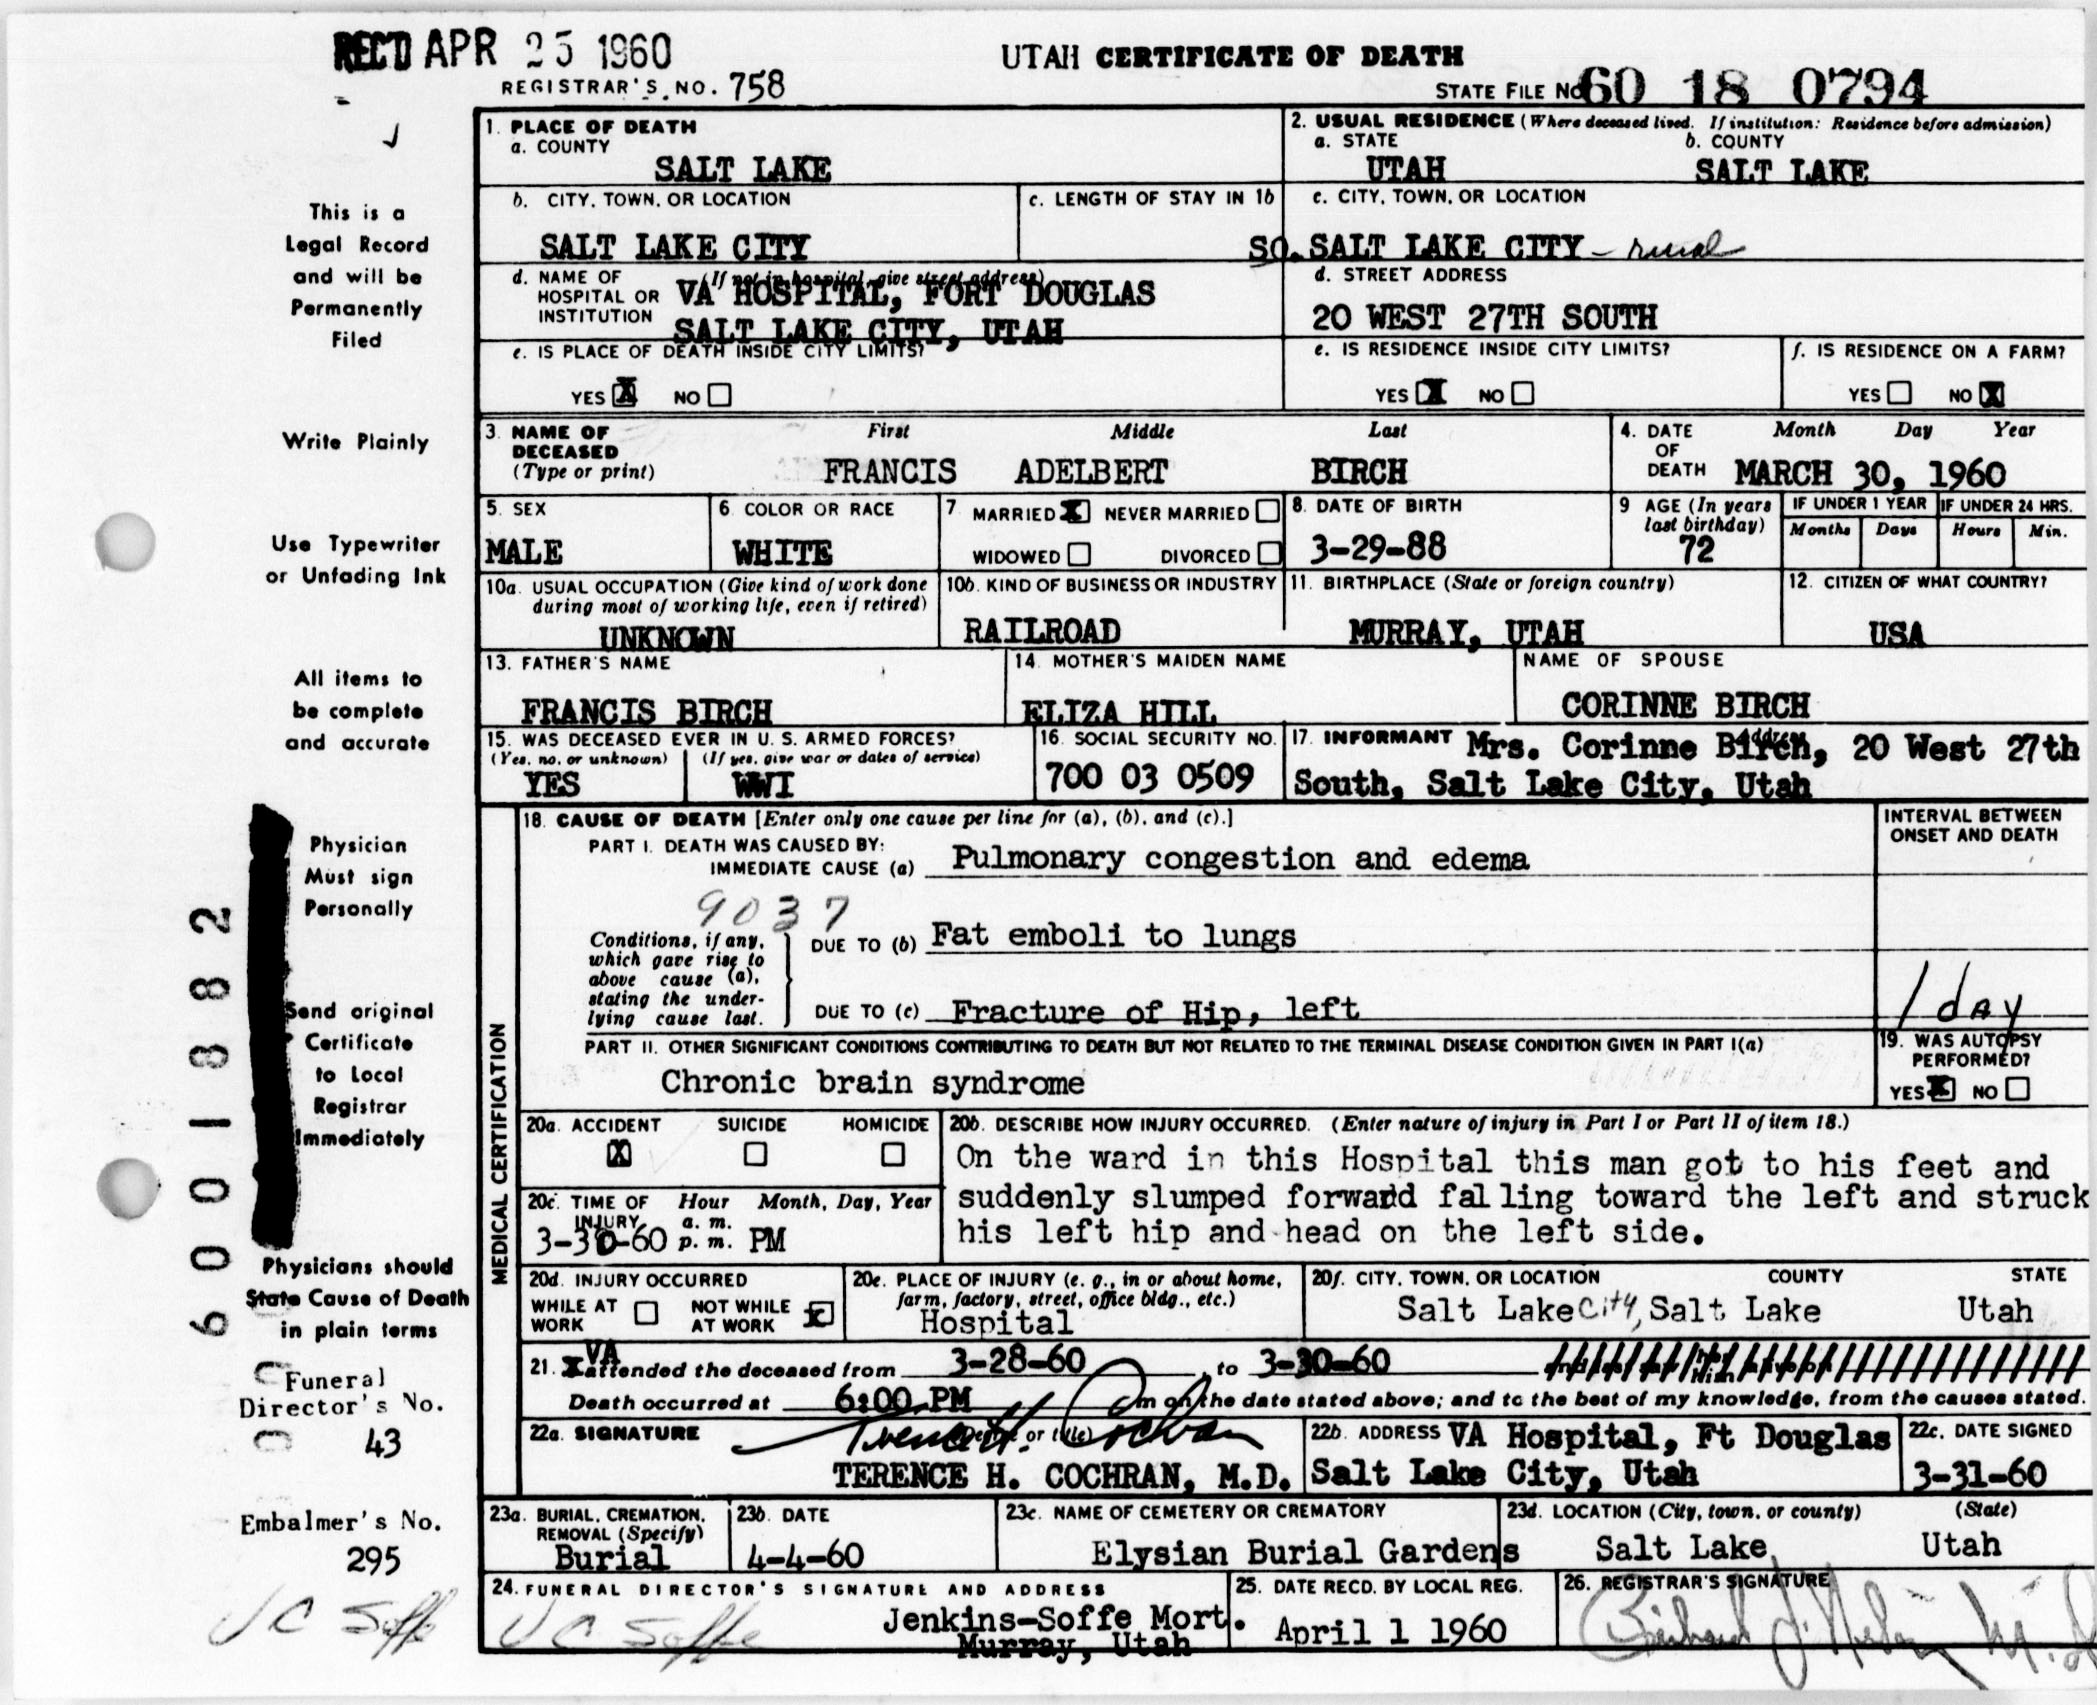 REC'D APR 25 1960
UTAH CERTIFICATE OF DEATH
REGISTRAR'S NO. 758
STATE FILE NO 60 18 0794
1. PLACE OF DEATH
a. COUNTY
SALT LAKE
2. USUAL RESIDENCE (Where deceased lived. If institution: Residence before admission)
a. STATE b. COUNTY
UTAH SALT LAKE
b. CITY, TOWN, OR LOCATION
SALT LAKE CITY
c. LENGTH OF STAY IN 1b
c. CITY, TOWN, OR LOCATION
SO. SALT LAKE CITY - rural
d. NAME OF HOSPITAL OR INSTITUTION (If not in hospital, give street address)
VA HOSPITAL, FORT DOUGLAS
SALT LAKE CITY, UTAH
d. STREET ADDRESS
20 WEST 27TH SOUTH
e. IS PLACE OF DEATH INSIDE CITY LIMITS?
YES X NO
e. IS RESIDENCE INSIDE CITY LIMITS?
YES X NO
f. IS RESIDENCE ON A FARM?
YES NO X
3. NAME OF DECEASED (Type or print)
First Middle Last
FRANCIS ADELBERT BIRCH
4. DATE OF DEATH Month Day Year
MARCH 30, 1960
5. SEX
MALE
6. COLOR OR RACE
WHITE
7. MARRIED X NEVER MARRIED
WIDOWED DIVORCED
8. DATE OF BIRTH
3-29-88
9 AGE (In years last birthday)
72
IF UNDER 1 YEAR IF UNDER 24 HRS.
Months Days Hours Min.
10a. USUAL OCCUPATION (Give kind of work done
during most of working life, even if retired)
UNKNOWN
10b. KIND OF BUSINESS OR INDUSTRY
RAILROAD
11. BIRTHPLACE (State or foreign country)
MURRAY, UTAH
12. CITIZEN OF WHAT COUNTRY?
USA
13. FATHER'S NAME
FRANCIS BIRCH
14. MOTHER'S MAIDEN NAME
ELIZA HILL
NAME OF SPOUSE
CORINNE BIRCH
15. WAS DECEASED EVER IN U. S. ARMED FORCES?
(Yes, no, or unknown) (If yes, give war or dates of service)
YES WWI
16. SOCIAL SECURITY NO.
700 03 0509
17. INFORMANT Address
Mrs. Corinne Birch, 20 West 27th
South, Salt Lake City, Utah
MEDICAL CERTIFICATION
18. CAUSE OF DEATH [Enter only one cause per line for (a), (b), and (c).]
INTERVAL BETWEEN ONSET AND DEATH
PART I. DEATH WAS CAUSED BY:
IMMEDIATE CAUSE (a) Pulmonary congestion and edema
9037
Conditions, if any,
which gave rise to
above cause (a),
stating the under-
lying cause last.
DUE TO (b) Fat emboli to lungs
DUE TO (c) Fracture of Hip, left
1 day
PART II. OTHER SIGNIFICANT CONDITIONS CONTRIBUTING TO DEATH BUT NOT RELATED TO THE TERMINAL DISEASE CONDITION GIVEN IN PART I(a)
Chronic brain syndrome
19. WAS AUTOPSY PERFORMED?
YES X NO
20a. ACCIDENT SUICIDE HOMICIDE
X
20b. DESCRIBE HOW INJURY OCCURRED. (Enter nature of injury in Part I or Part II of item 18.)
On the ward in this Hospital this man got to his feet and
suddenly slumped forward falling toward the left and struck
his left hip and head on the left side.
20c. TIME OF INJURY Hour Month, Day, Year
a. m.
p. m.
3-30-60 PM
20d. INJURY OCCURRED
WHILE AT WORK NOT WHILE AT WORK X
20e. PLACE OF INJURY (e. g., in or about home,
farm, factory, street, office bldg., etc.)
Hospital
20f. CITY, TOWN, OR LOCATION COUNTY STATE
Salt Lake City, Salt Lake Utah
21. VA attended the deceased from 3-28-60 to 3-30-60
Death occurred at 6:00 PM m on the date stated above; and to the best of my knowledge, from the causes stated.
22a. SIGNATURE (Degree or title)
Terence H. Cochran
TERENCE H. COCHRAN, M.D.
22b. ADDRESS VA Hospital, Ft Douglas
Salt Lake City, Utah
22c. DATE SIGNED
3-31-60
23a. BURIAL, CREMATION, REMOVAL (Specify)
Burial
23b. DATE
4-4-60
23c. NAME OF CEMETERY OR CREMATORY
Elysian Burial Gardens
23d. LOCATION (City, town, or county) (State)
Salt Lake, Utah
24. FUNERAL DIRECTOR'S SIGNATURE AND ADDRESS
J C Soffe
Jenkins-Soffe Mort.
Murray, Utah
25. DATE RECD. BY LOCAL REG.
April 1 1960
26. REGISTRAR'S SIGNATURE
This is a
Legal Record
and will be
Permanently
Filed
Write Plainly
Use Typewriter
or Unfading Ink
All items to
be complete
and accurate
Physician
Must sign
Personally
Send original
Certificate
to Local
Registrar
Immediately
Physicians should
State Cause of Death
in plain terms
6001882
Funeral
Director's No.
43
Embalmer's No.
295
J C Soffe